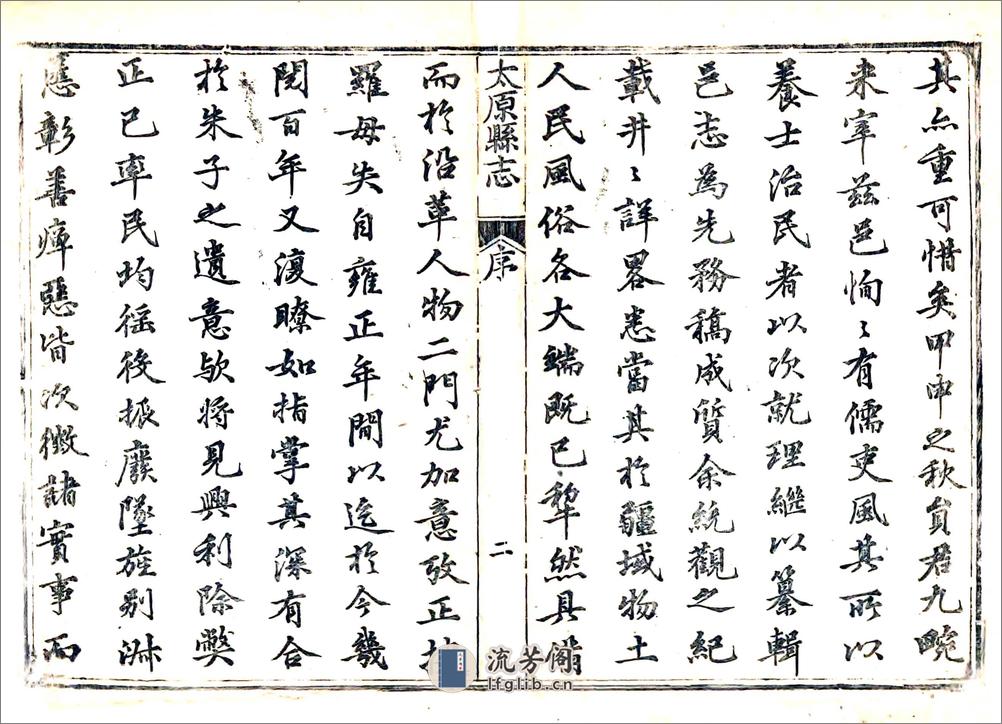 其亦重可惜矣甲申之秋貟君九畹
来宰兹邑恂〻有儒吏風其所以
養士治民者以次就理継以纂輯
邑志為先務稿成質余統觀之紀
載井〻詳畧悉當其於疆域物土
人民風俗各大端既已犂然具備
太原縣志 序 二
而於沿革人物二門尤加意攷正
羅毋失自雍正年間以迄於今幾
閱百年又復瞭如指掌其深有合
於朱子之遺意歟将見興利除弊
正己率民均徭役振廢墜旌别淑
慝彰善癉惡皆次徵諸實事而
流芳阁
lfglib.cn